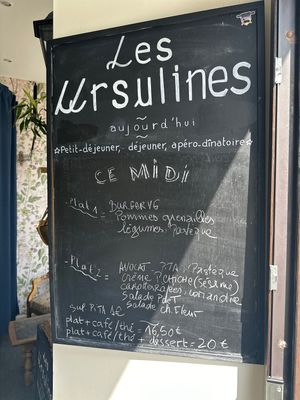 Les
Ursulines
aujourd'hui
☆Petit-déjeuner, déjeuner, apéro-dînatoire☆
CE MIDI
-Plat 1 = BURGER VG
Pommes grenailles
légumes, Pastèque
-Plat 2 = AVOCAT - PITA, Pastèque
crème P.CHICHE (SéSAME)
carottes râpées, coriandre
Salade PdeT
salade ch fleur
SUP. PITA 4€
plat + café/thé = 16,50€
plat + café/thé + dessert = 20€